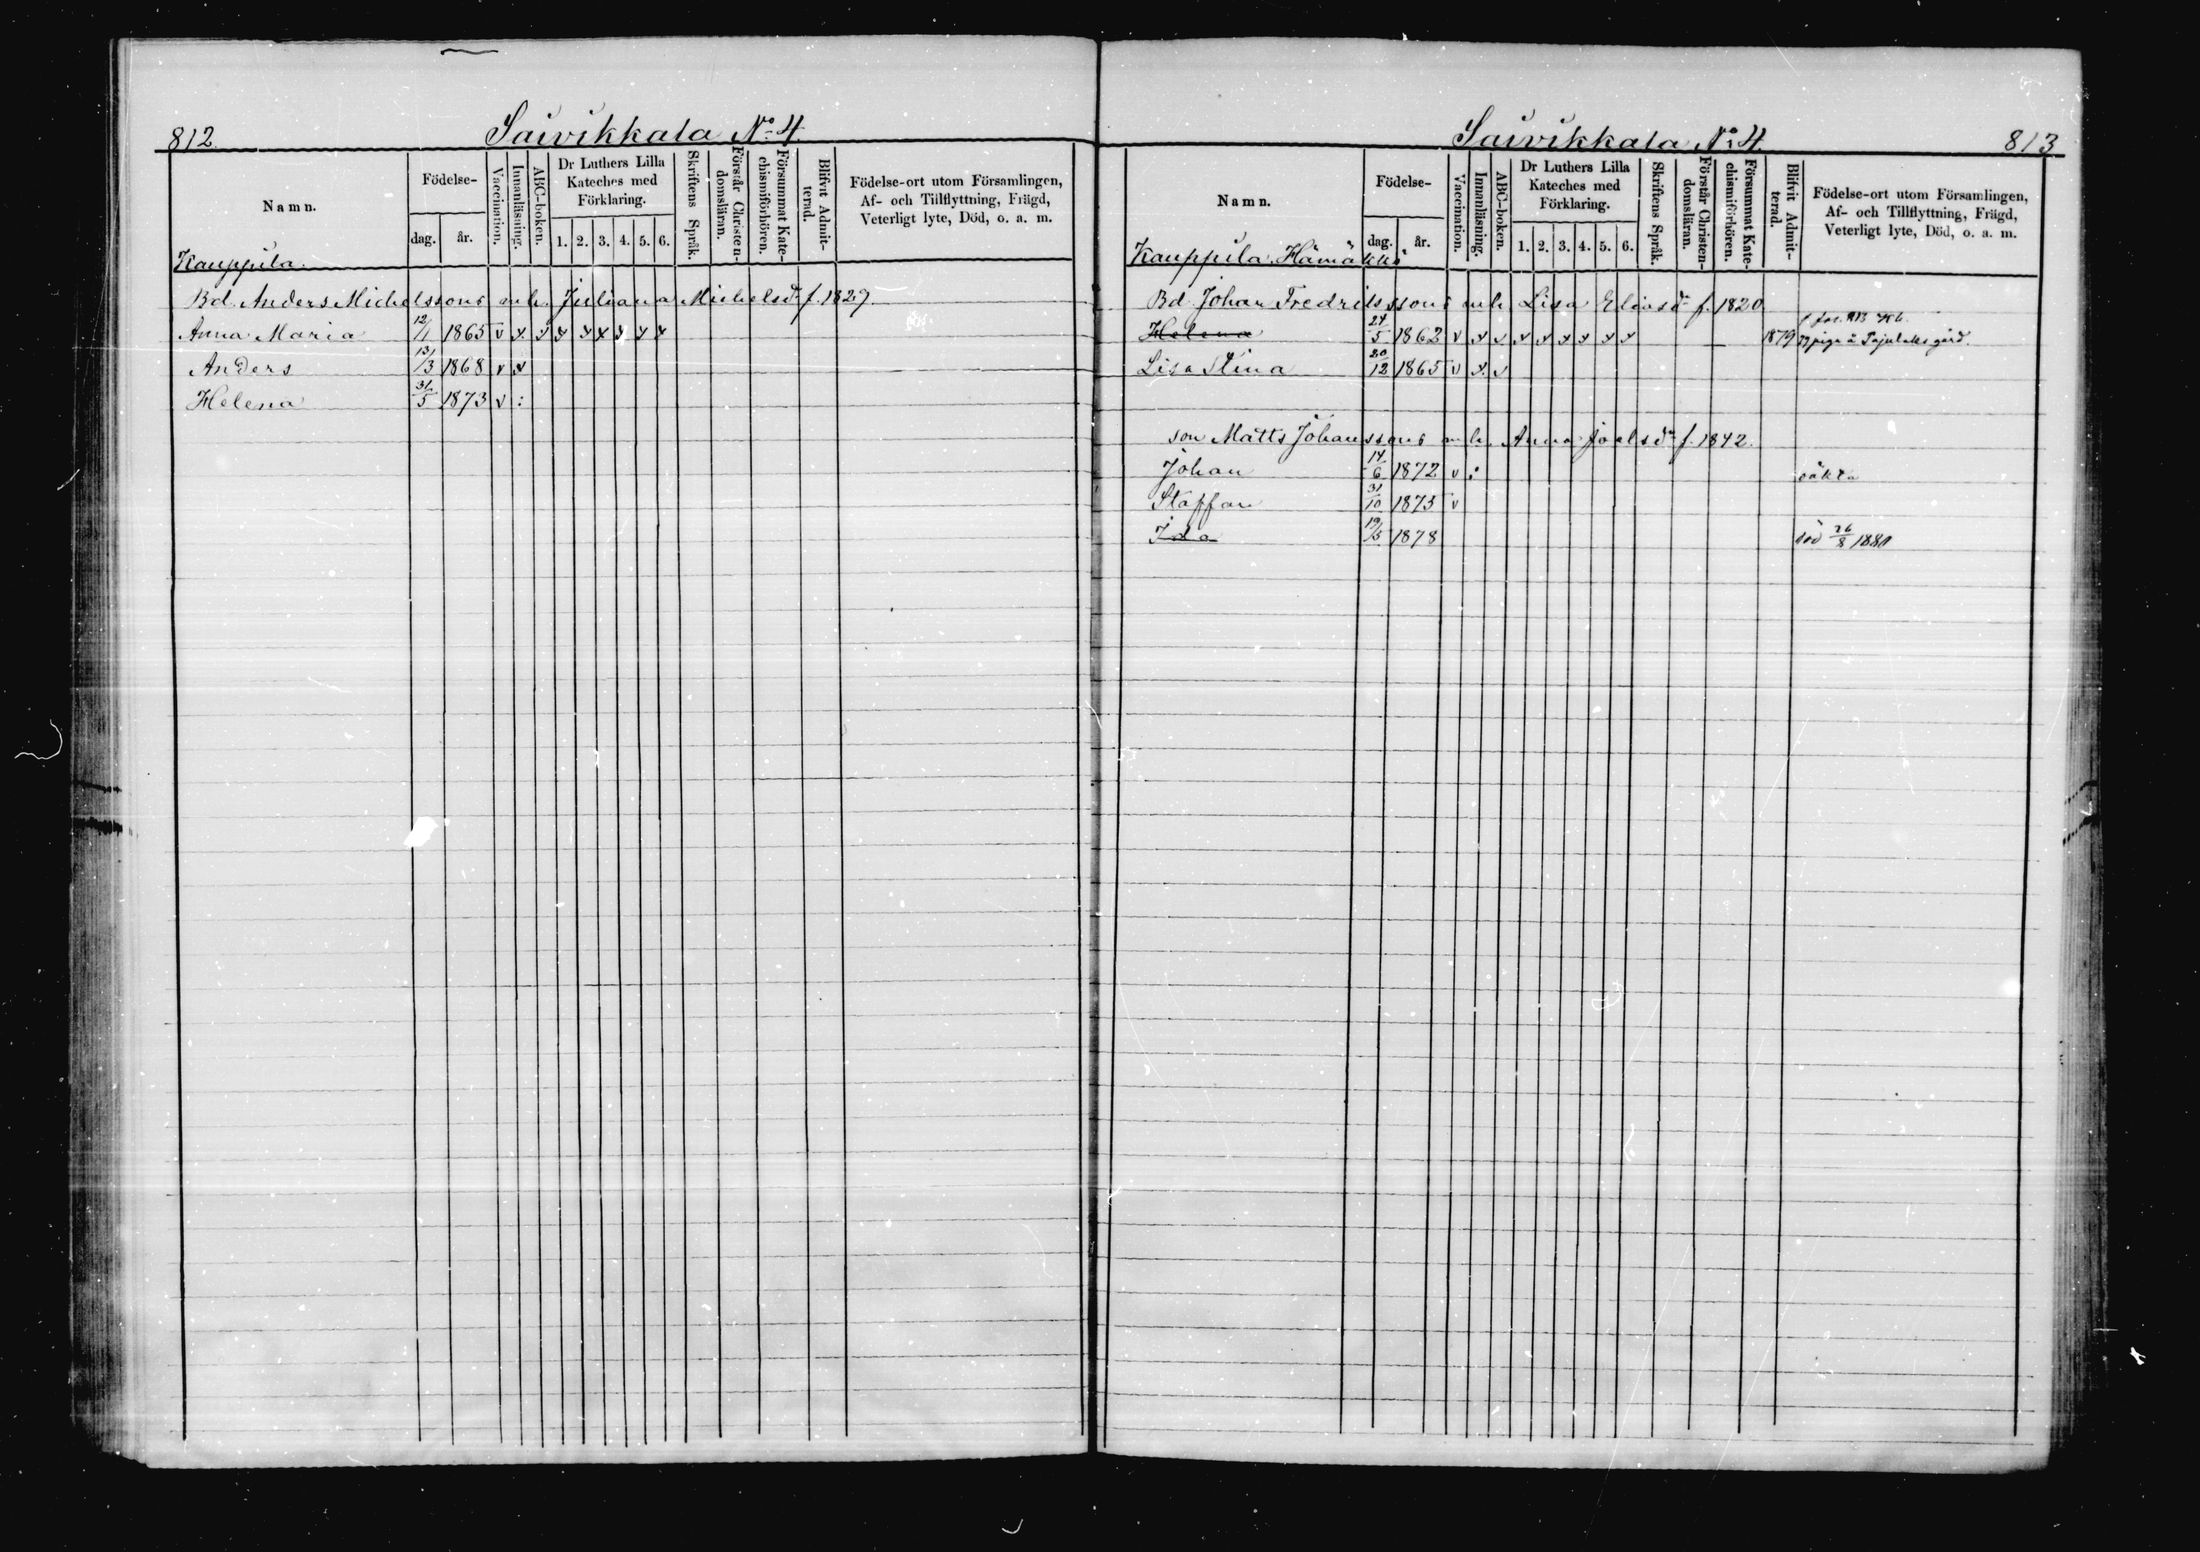 812.
Saivikkala No 4.
Namn.
Födelse-
dag.
år.
Vaccination.
Innanläsning.
ABC-boken.
Dr Luthers Lilla
Kateches med
Förklaring.
1. 2. 3. 4. 5. 6.
Skriftens Språk.
Förstår Christen-
domsläran.
Försummat Kate-
chismiförhören.
Blifvit Admit-
terad.
Födelse-ort utom Församlingen,
Af- och Tillflyttning, Frägd,
Veterligt lyte, Död, o. a. m.
Kauppila.
Bd. Anders Michelssons enk. Juliana Michelsdr f. 1829.
Anna Maria 12/1 1865 v x x x x x x x x
Anders 13/3 1868 v x
Helena 31/5 1873 v :
Saivikkala No 4.
813
Namn.
Födelse-
dag.
år.
Vaccination.
Innanläsning.
ABC-boken.
Dr Luthers Lilla
Kateches med
Förklaring.
1. 2. 3. 4. 5. 6.
Skriftens Språk.
Förstår Christen-
domsläran.
Försummat Kate-
chismiförhören.
Blifvit Admit-
terad.
Födelse-ort utom Församlingen,
Af- och Tillflyttning, Frägd,
Veterligt lyte, Död, o. a. m.
Kauppila. Hämäkki
Bd. Johan Fredrikssons enk. Lisa Eliasdr f. 1820
Helena 24/5 1862 v x x x x x x x x 1879 piga å gård.
Lisa Stina 20/12 1865 v x v
son Matts Johanssons enk. Anna Joelsdr f. 1842.
Johan 14/6 1872 v : oäkta
Staffan 31/10 1875 v
Ida 19/5 1878 död 26/8 1880